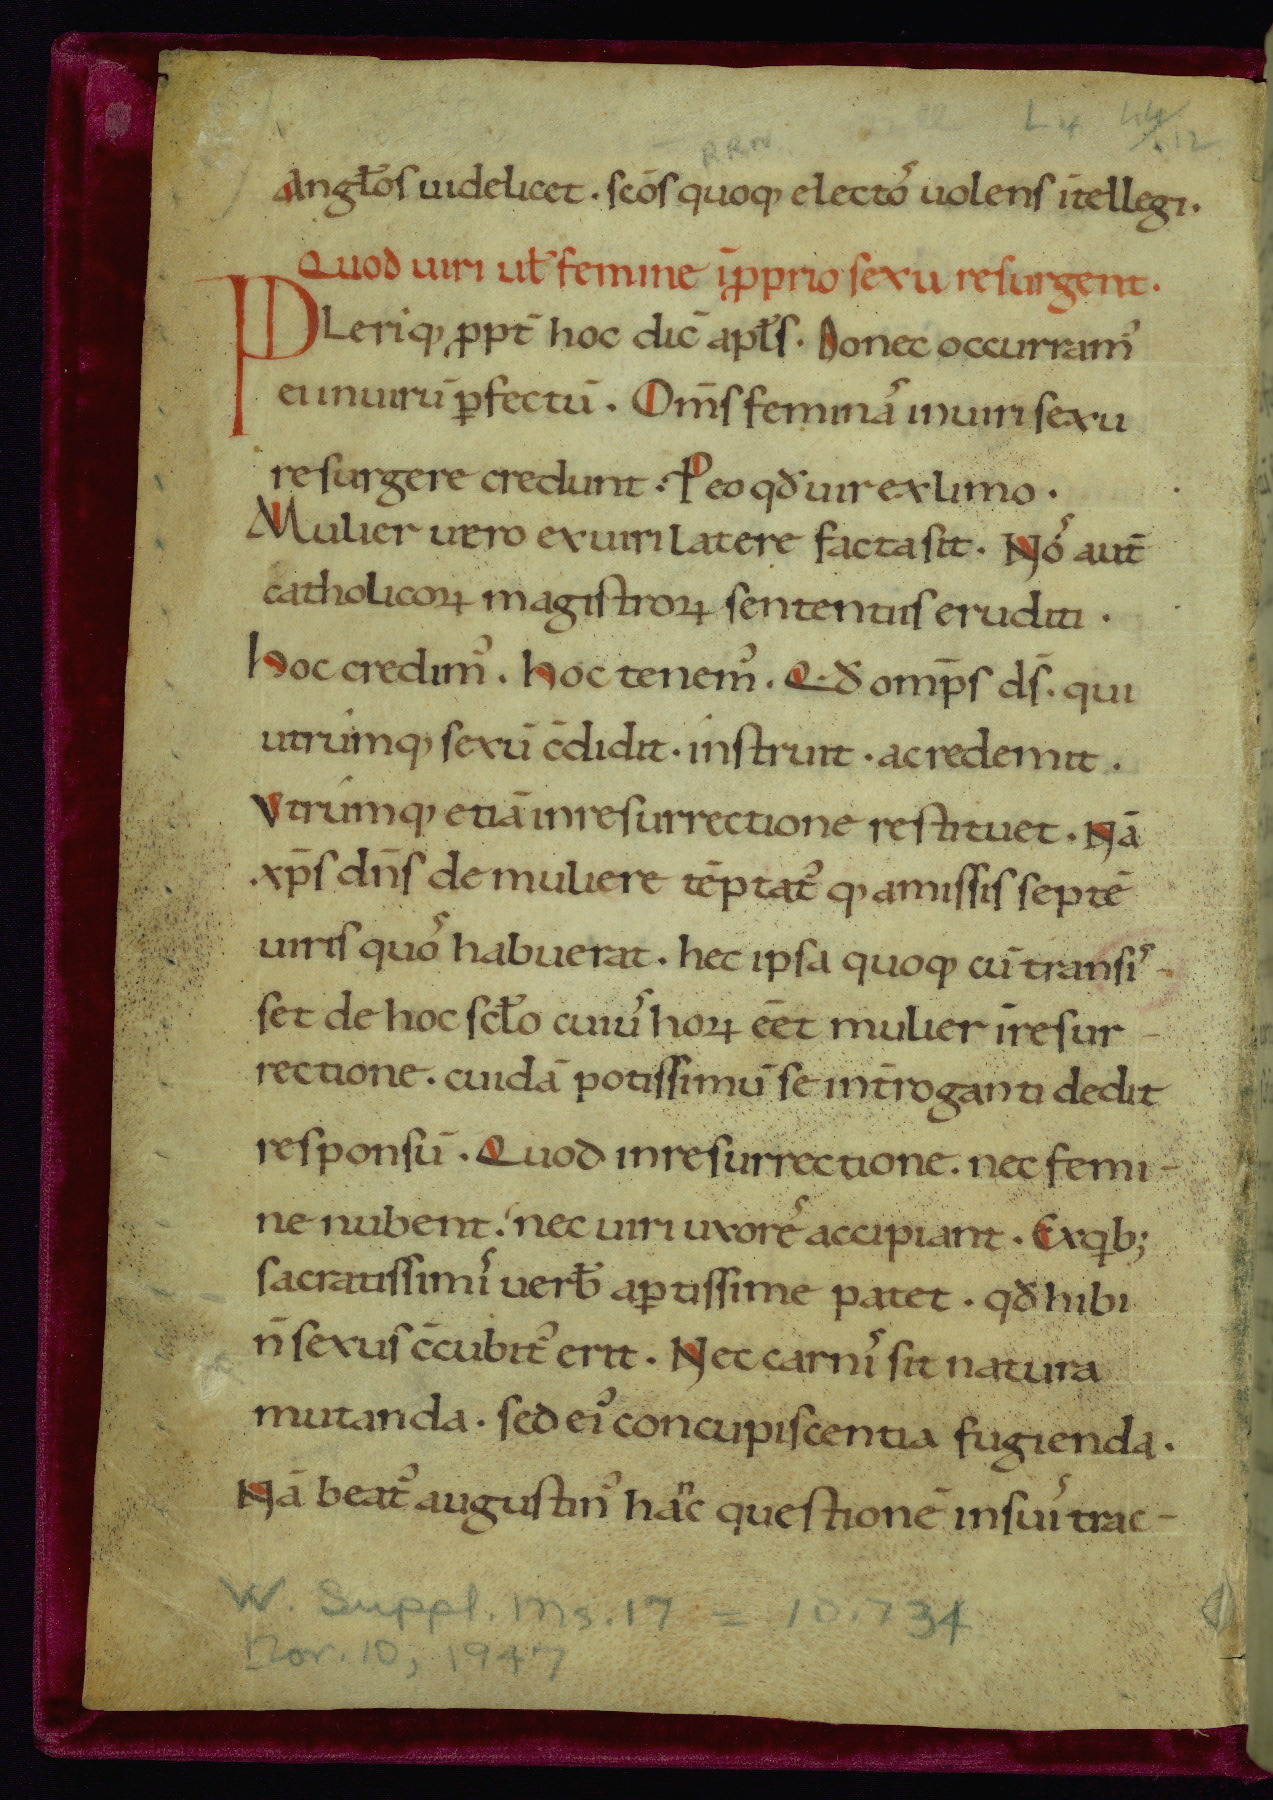 L 4 44/.12
RRN
Angl̄os uidelicet. sc̄os quoq; electoꝰ uolens ītellegi.
Quod uiri ul̄ femine īpprio sexu resurgent.
PLeriq; ꝓpt̄ hoc dic̄ apl̄s. Donec occurramꝰ
ei in uirū ꝑfectū. Om̄s feminaꝰ in uiri sexu
resurgere credunt. P eo qđ uir ex limo.
Mulier uero ex uiri latere facta sit. Noꝰ aut̄
catholicoꝝ magistroꝝ sententiis eruditi.
hoc credimꝰ. hoc tenemꝰ. Qđ omp̄s d̄s. qui
utrumq; sexū c̄didit. instruit. ac redemit.
Vtrumq; etiā in resurrectione restituet. Nā
xp̄s dn̄s de muliere tēptatꝰ q; amissis septē
uiris quoꝰ habuerat. hec ipsa quoq; cū transiꝰ-
set de hoc scl̄o cuiuꝰ hoꝝ eēt mulier īresur-
rectione. cuidā potissimū se int̄roganti dedit
responsū. Quod in resurrectione. nec femi-
ne nubent. nec uiri uxoreꝰ accipiant. Ex qib;
sacratissimiꝰ uerb̄ aꝑtissime patet. qđ hibi
n̄ sexus c̄cubitꝰ erit. Nec carniꝰ sit natura
mutanda. sed eiꝰ concupiscentia fugienda.
Nā beatꝰ augustinꝰ hanc questionē in suiꝰ trac-
W. Suppl. Ms. 17 = 10.734
Nov. 10, 1947